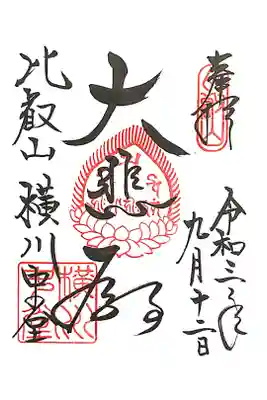 奉拝
令和三年
九月十二日
大悲殿
比叡山横川中堂